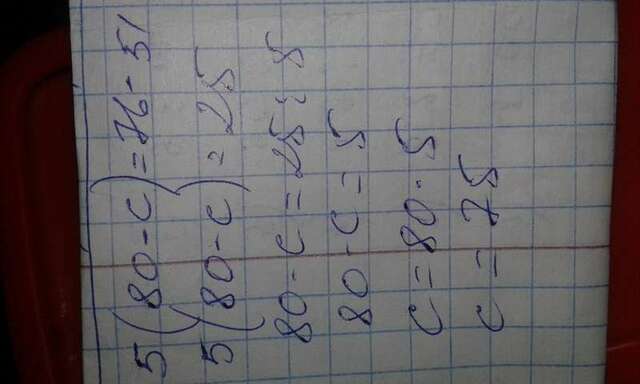 5(80-c)=76-51
5(80-c)=25
80-c=25:5
80-c=5
c=80-5
c=75